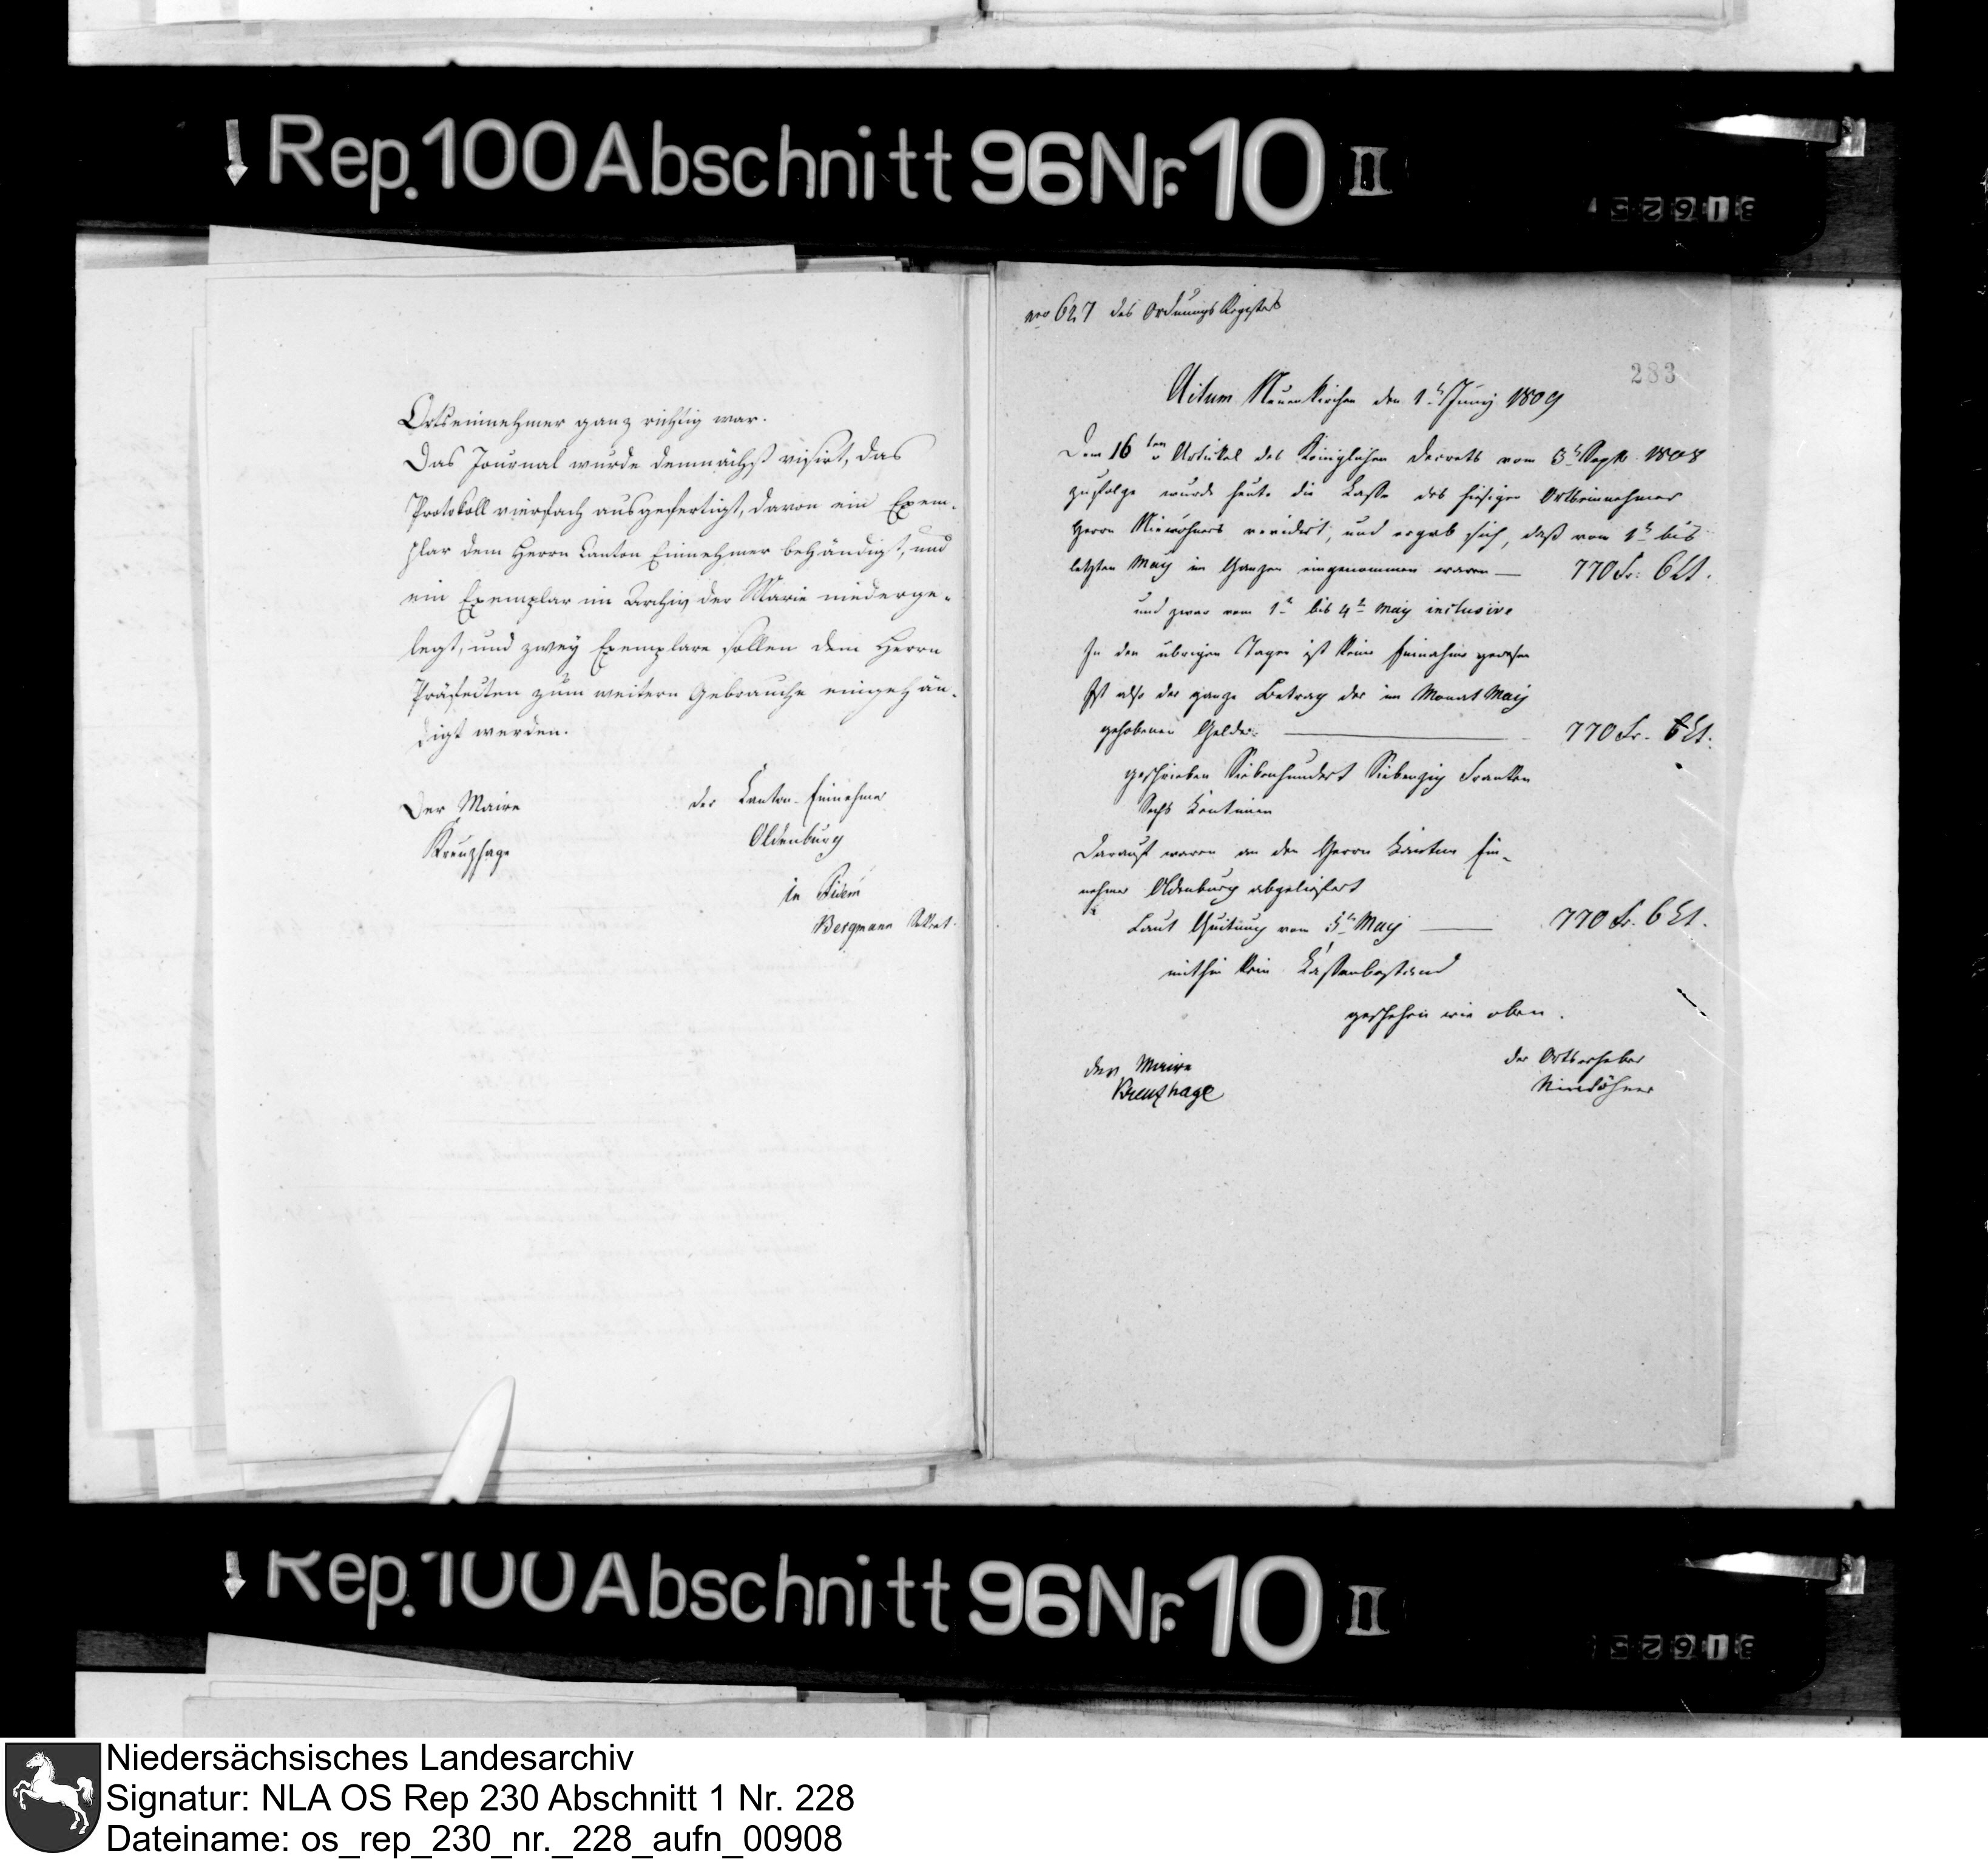 Rep. 100 Abschnitt 96 Nr. 10 II
31625
Ortseinnehmer ganz richtig war.
Das Journal wurde demnächst visirt, das
Protokoll vierfach ausgefertigt, davon ein Exem-
plar dem Herrn Canton Einnehmer behändigt, und
ein Exemplar im Archiv der Marie niederge-
legt, und zwey Exemplare sollen dem Herrn
Präfecten zum weitern Gebrauche eingehän-
digt werden.
Der Maire
Kreuzhage
der Canton-Einnehmer
Oldenburg
in Fidem
Bergmann Sekret.
nro 627 des Ordnungs Registers
283
Actum Neuenkirchen den 1t Juny 1809
Dem 16ten Artikel des Königlichen Decrets vom 3t Sept. 1808
zufolge wurde heute die Casse des hiesigen Ortseinnehmer
Herrn Niewöhners revidirt, und ergab sich, daß vom 1t bis
letzten May im Ganzen eingenommen waren — 770 Fr. 6 Ct.
und zwar vom 1t bis 4t May inclusive
In den übrigen Tagen ist keine Einnahme gewesen
Ist also der ganze Betrag der im Monat May
gehobenen Gelder — 770 Fr. 6 Ct.
geschrieben Siebenhundert Siebenzig Franken
Sechs Centimen
Darauf waren an den Herrn Canton Ein-
nehmer Oldenburg abgeliefert
Laut Quitung vom 5t May — 770 Fr. 6 Ct.
mithin kein Cassenbestand
geschehen wie oben.
der Maire
Kreuzhage
der Ortserheber
Niewöhner
Rep. 100 Abschnitt 96 Nr. 10 II
31625
Niedersächsisches Landesarchiv
Signatur: NLA OS Rep 230 Abschnitt 1 Nr. 228
Dateiname: os_rep_230_nr._228_aufn_00908